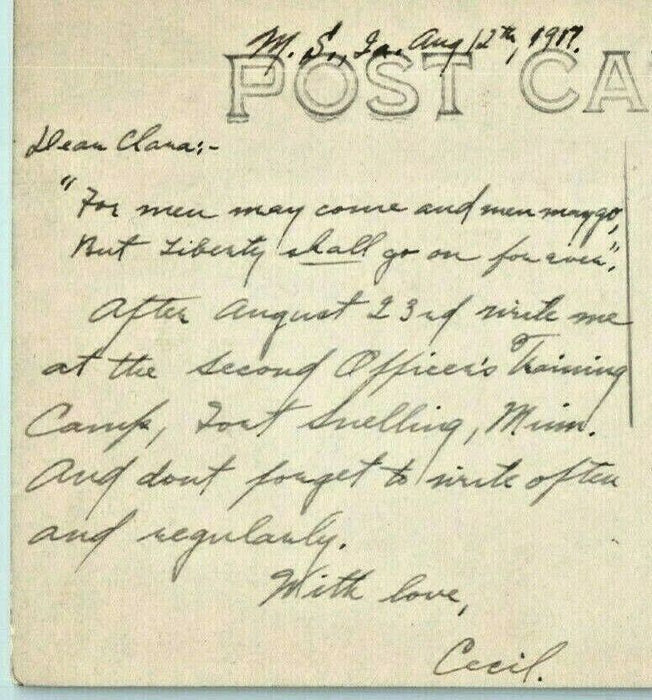 M. S., Ia. Aug 12th, 1917.
POST CA
Dear Clara:-
"For men may come and men may go,
But Liberty shall go on forever".
After August 23rd write me
at the Second Officer's Training
Camp, Fort Snelling, Minn.
And dont forget to write often
and regularly.
With love,
Cecil.